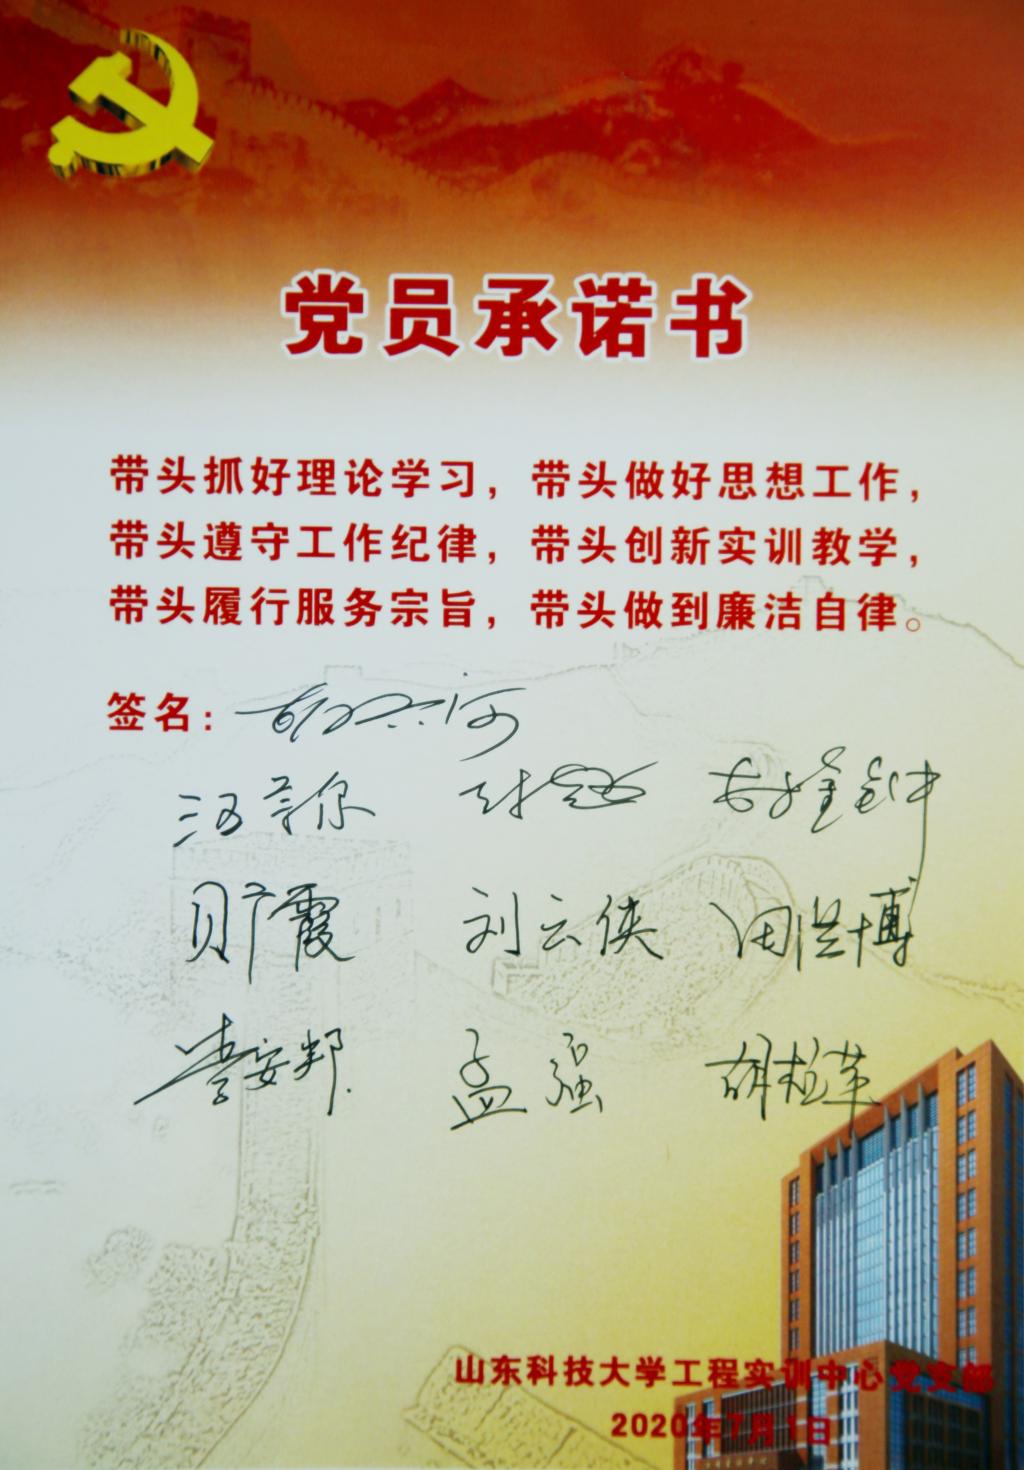 党员承诺书
带头抓好理论学习，带头做好思想工作，
带头遵守工作纪律，带头创新实训教学，
带头履行服务宗旨，带头做到廉洁自律。
签名：
刘云侠
李安邦 孟强
山东科技大学工程实训中心党支部
2020年7月1日